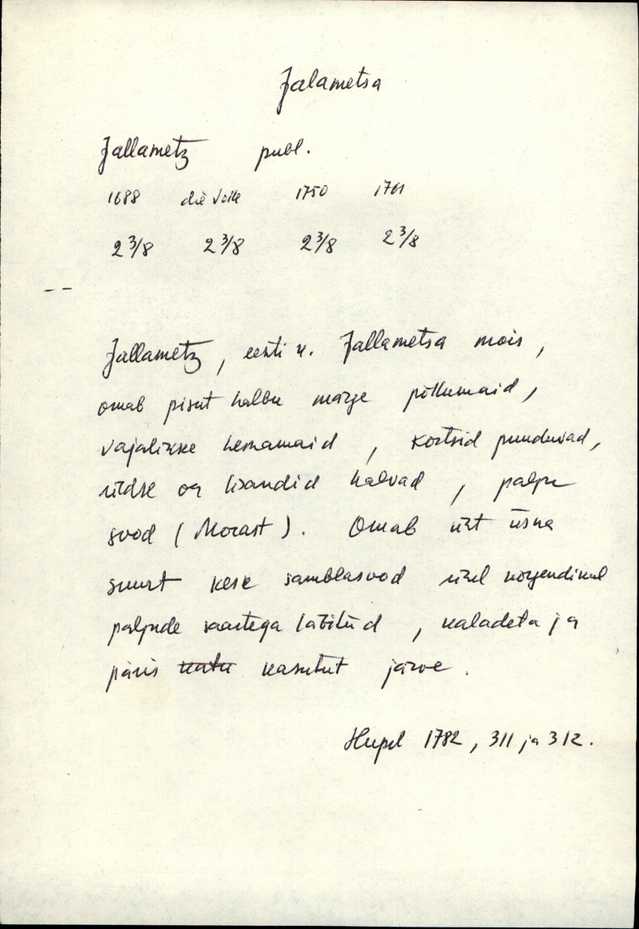 Jalametsa
Jallametz publ.
1688 die Volle 1750 1761
2 3/8 2 3/8 2 3/8 2 3/8
--
Jallametz, eesti k. Jallametsa mois,
omab pisut halbu märge põllumaid,
vajalikke heinamaid, kõrtsid puuduvad,
üldse on lisandid halvad, palju
sood (Morast). Omab üht üsna
suurt kesk samblasood ühel kõrgendikul
paljude saartega läbitud, kaladeta ja
päris kasutut järve.
Hupel 1782, 311 ja 312.